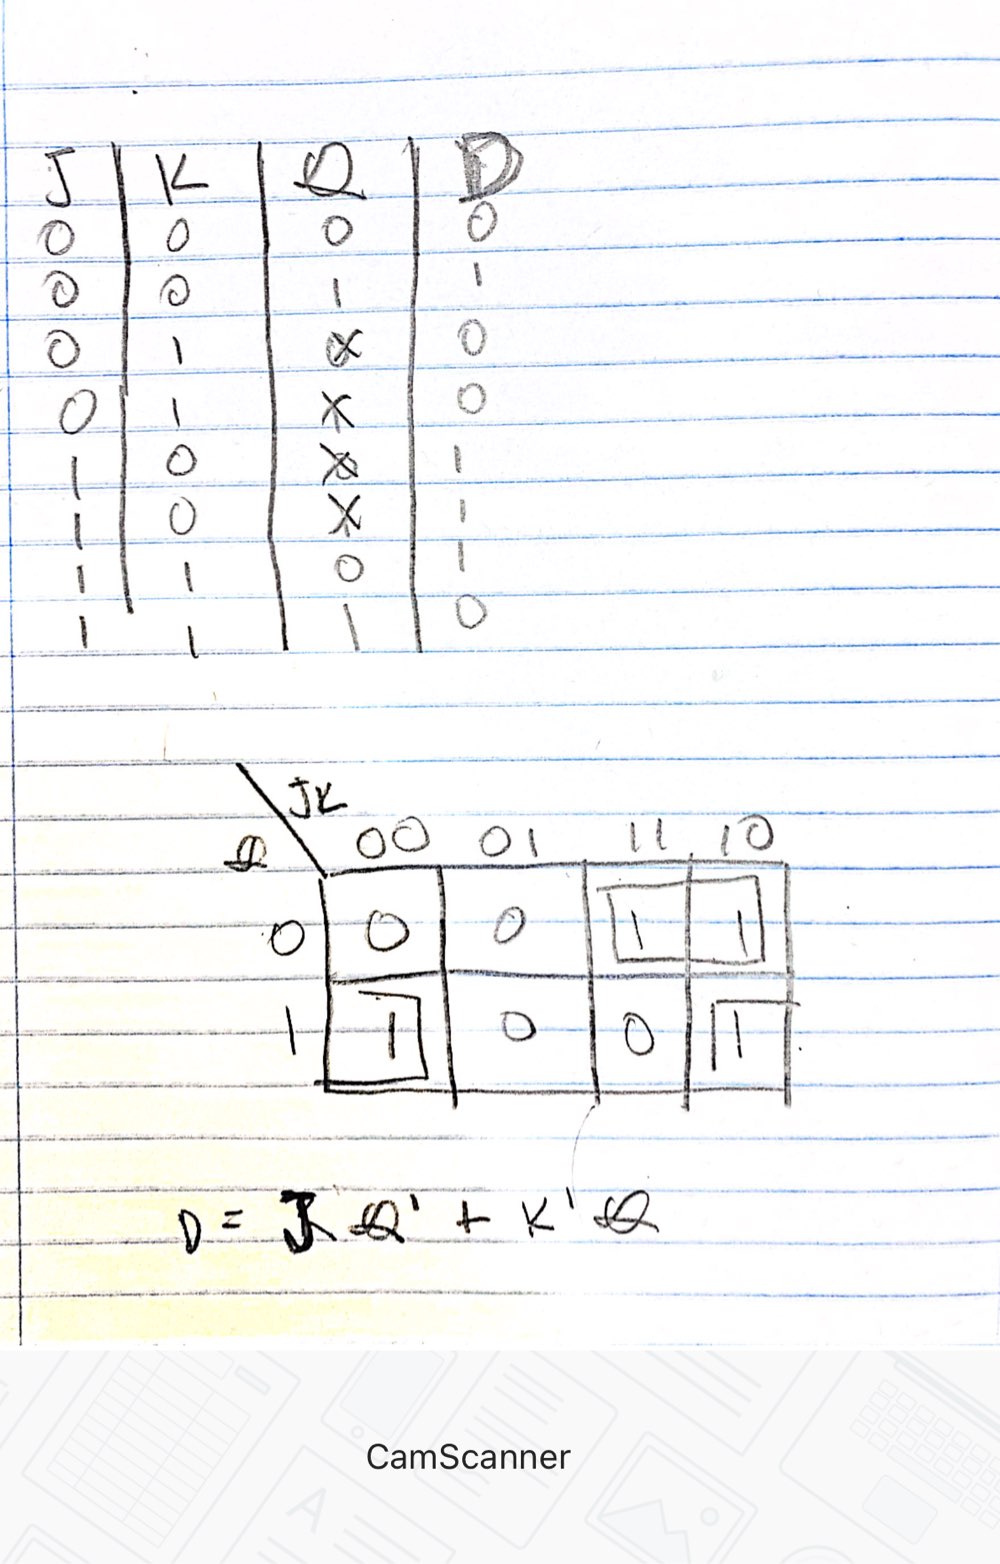 J K Q D
0 0 0 0
0 0 1 1
0 1 X 0
0 1 X 0
1 0 X 1
1 0 X 1
1 1 0 1
1 1 1 0
JK
Q 00 01 11 10
0 0 0 1 1
1 1 0 0 1
D = J Q' + K' Q
CamScanner